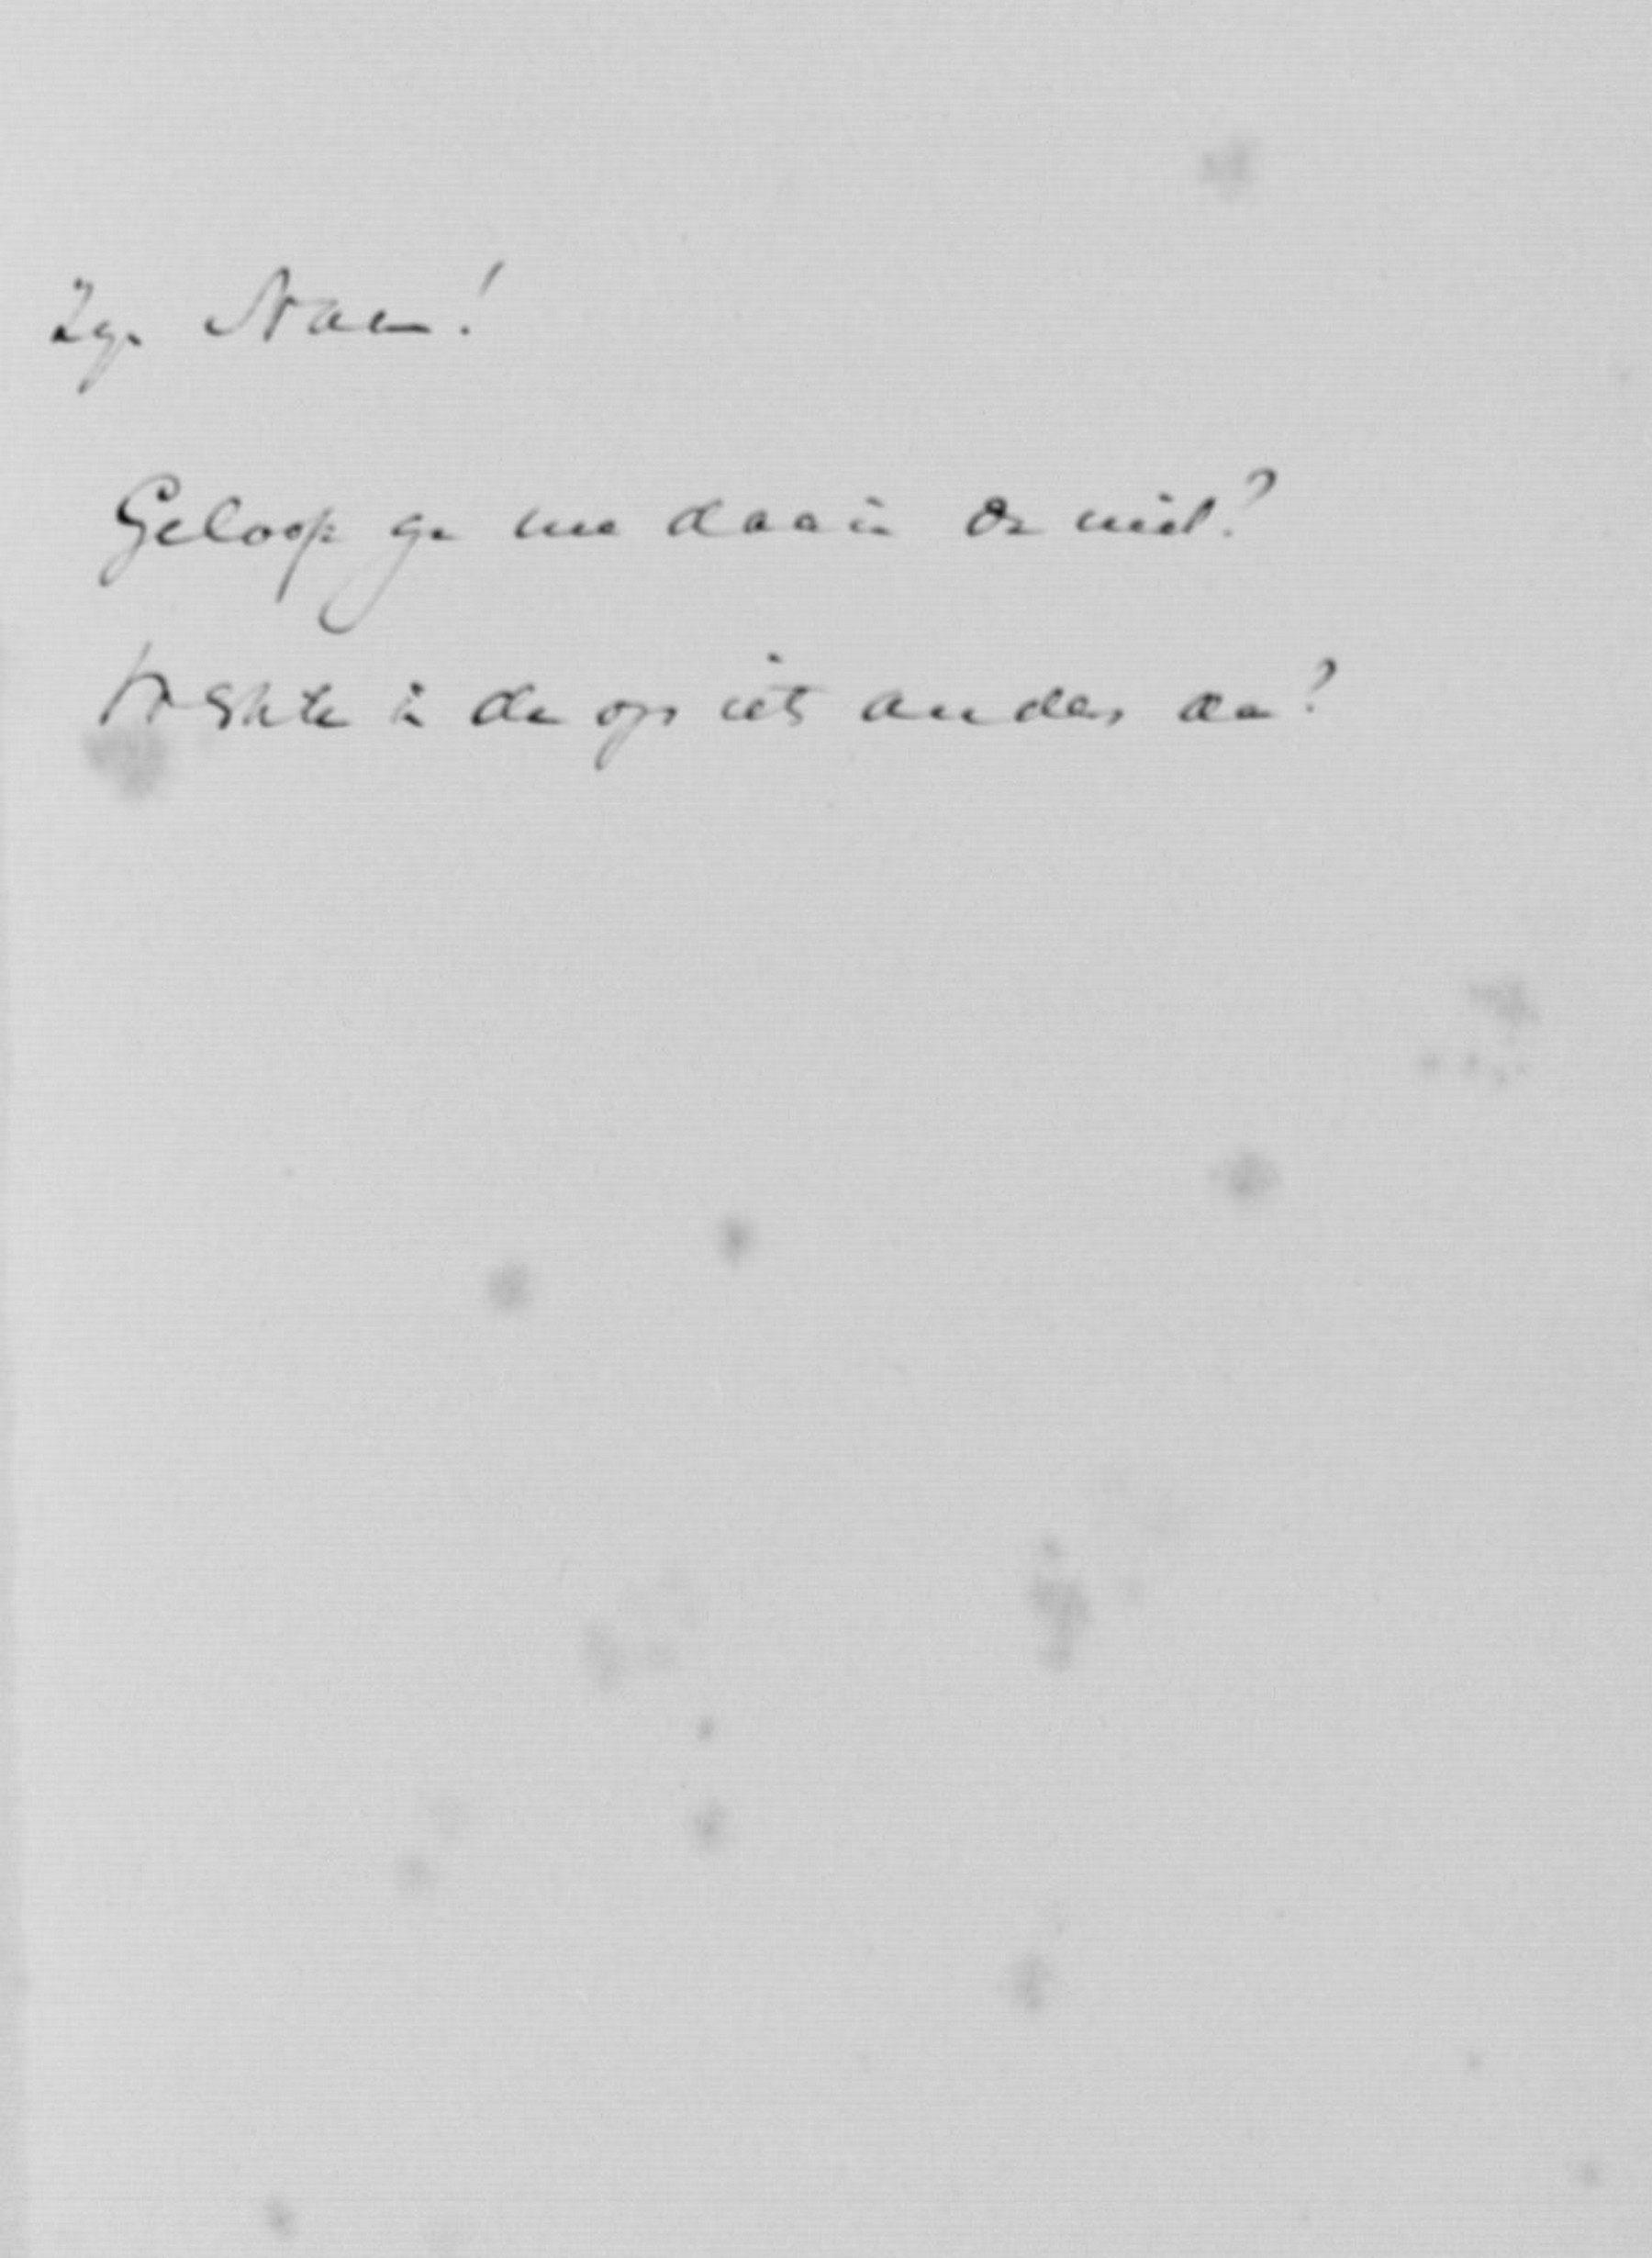 Zyn Naam!
Geloof ge me daarin of niet?
ik de op iets anders dan?